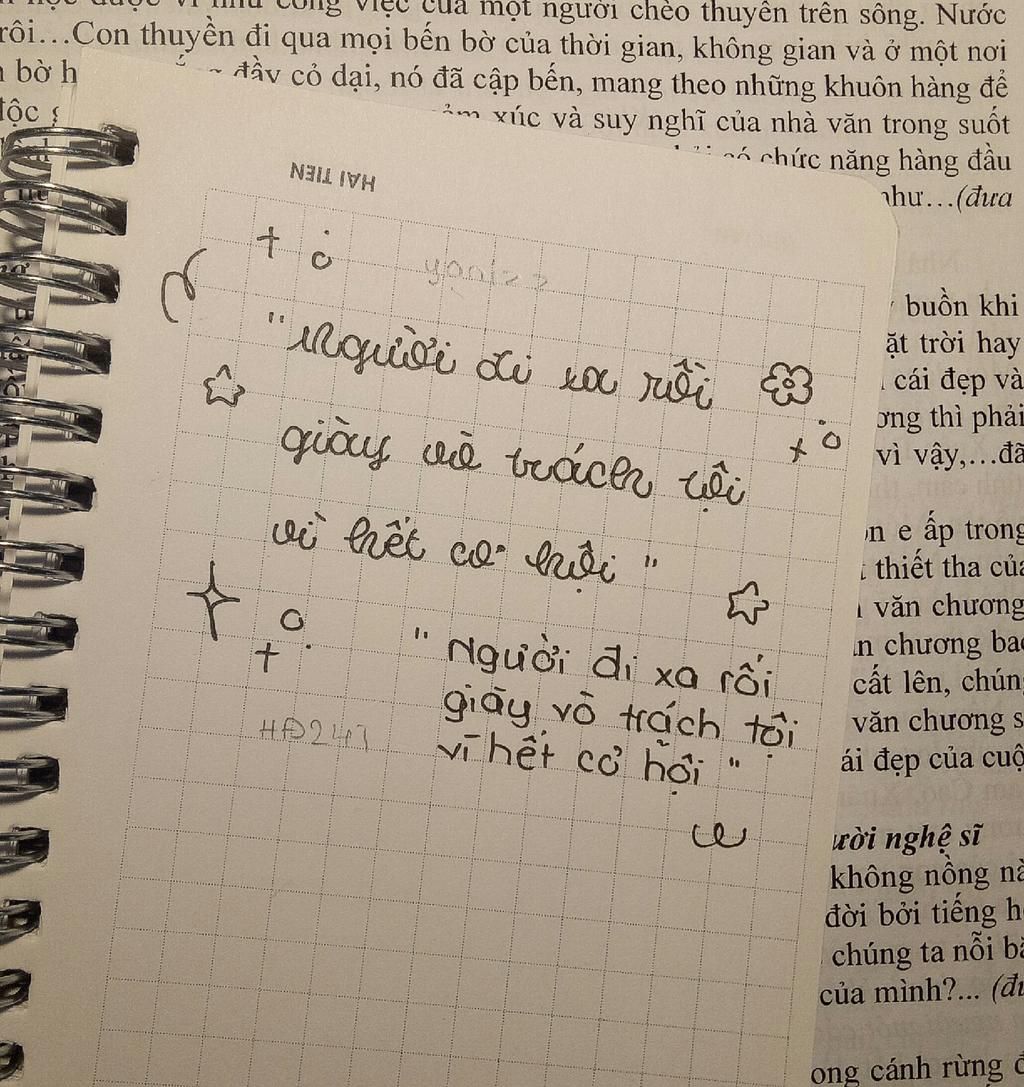 học được ví như công việc của một người chèo thuyền trên sông. Nước
rôi…Con thuyền đi qua mọi bến bờ của thời gian, không gian và ở một nơi
bờ đầy cỏ dại, nó đã cập bến, mang theo những khuôn hàng để
xúc và suy nghĩ của nhà văn trong suốt
có chức năng hàng đầu
như…(đưa
HAI TIEN
"Người đi xa rồi
giày vò trách tôi
vì hết cơ hội"
"Người đi xa rồi
giày vò trách tôi
vì hết cơ hội"
HĐ247
buồn khi
ặt trời hay
cái đẹp và
ơng thì phải
vì vậy,…đã
e ấp trong
thiết tha của
văn chương
chương bao
cất lên, chúng
văn chương s
ái đẹp của cuộ
ười nghệ sĩ
không nồng nà
đời bởi tiếng h
chúng ta nỗi b
của mình?... (đư
ong cánh rừng